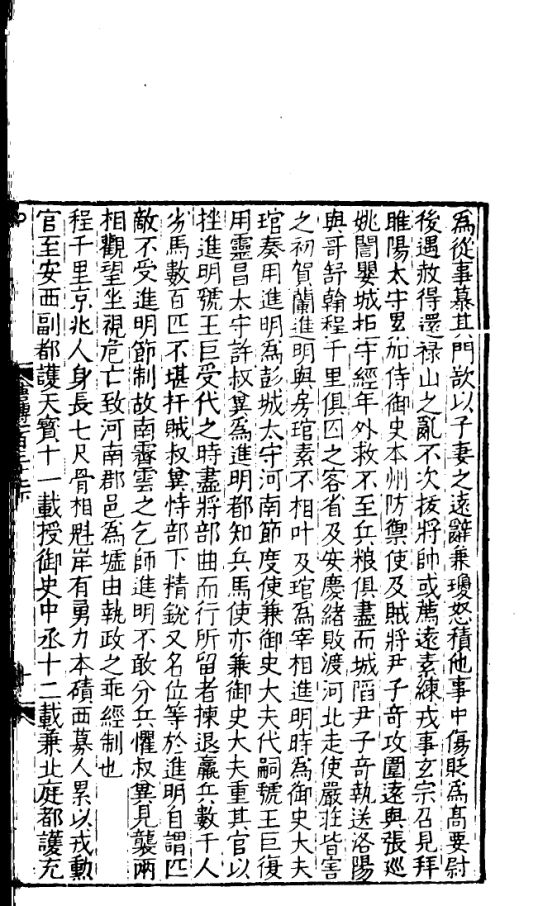 為從事慕其門欲以子妻之遠辭兼瓊怒積他事中傷貶為髙要尉
後遇赦得還祿山之亂不次拔將帥或薦遠素練戎事玄宗召見拜
睢陽太守累加侍御史本州防禦使及賊將尹子奇攻圍遠與張巡
姚誾嬰城拒守經年外救不至兵粮俱盡而城䧟尹子奇執送洛陽
與哥舒翰程千里俱囚之客省及安慶緒敗渡河北走使嚴莊皆害
之初賀蘭進明與房琯素不相叶及琯為宰相進明時為御史大夫
琯奏用進明為彭城太守河南節度使兼御史大夫代嗣號王巨復
用靈昌太守許叔兾為進明都知兵馬使亦兼御史大夫重其官以
挫進明號王巨受代之時盡將部曲而行所留者揀退羸兵數千人
劣馬數百匹不堪扞賊叔兾恃部下精銳又名位等於進明自謂匹
敵不受進明節制故南霽雲之乞師進明不敢分兵懼叔兾見襲兩
相觀望坐視危亡致河南郡邑為墟由執政之乖經制也
程千里京兆人身長七尺骨相魁岸有勇力本磧西募人累以戎勳
官至安西副都護天寶十一載授御史中丞十二載兼北庭都護充